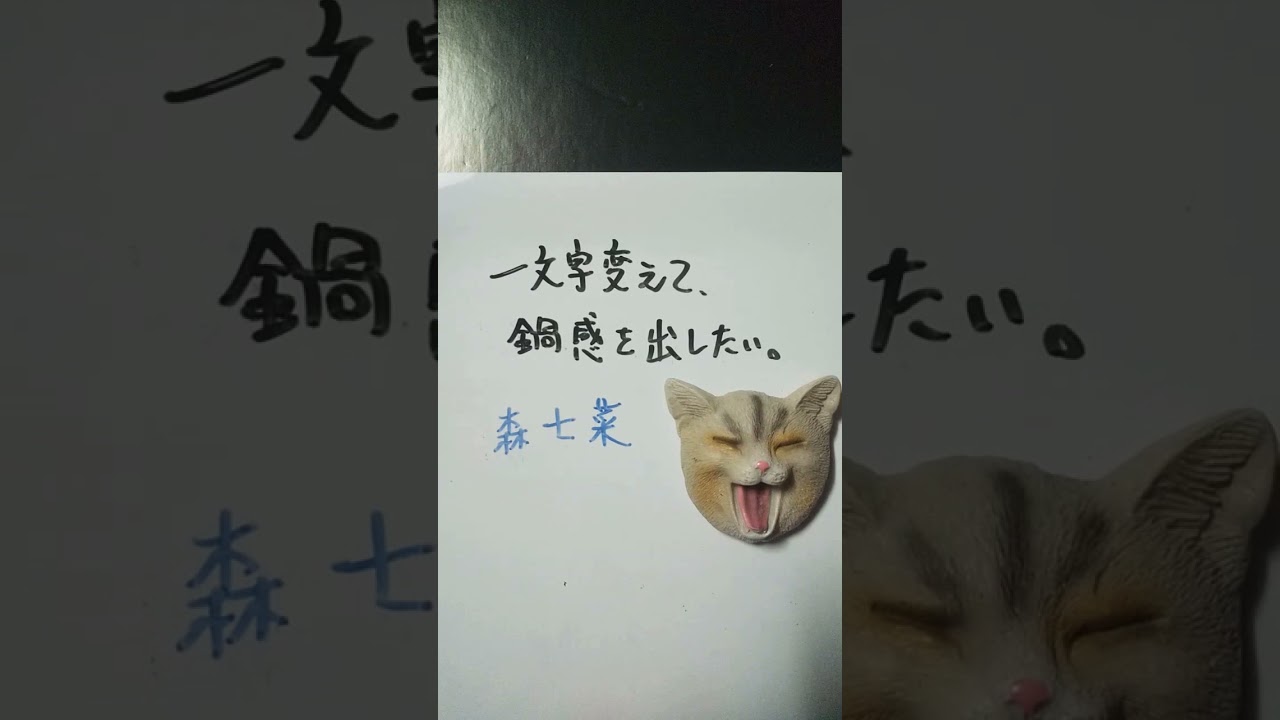 一文字変えて、
鍋感を出したい。
森七菜